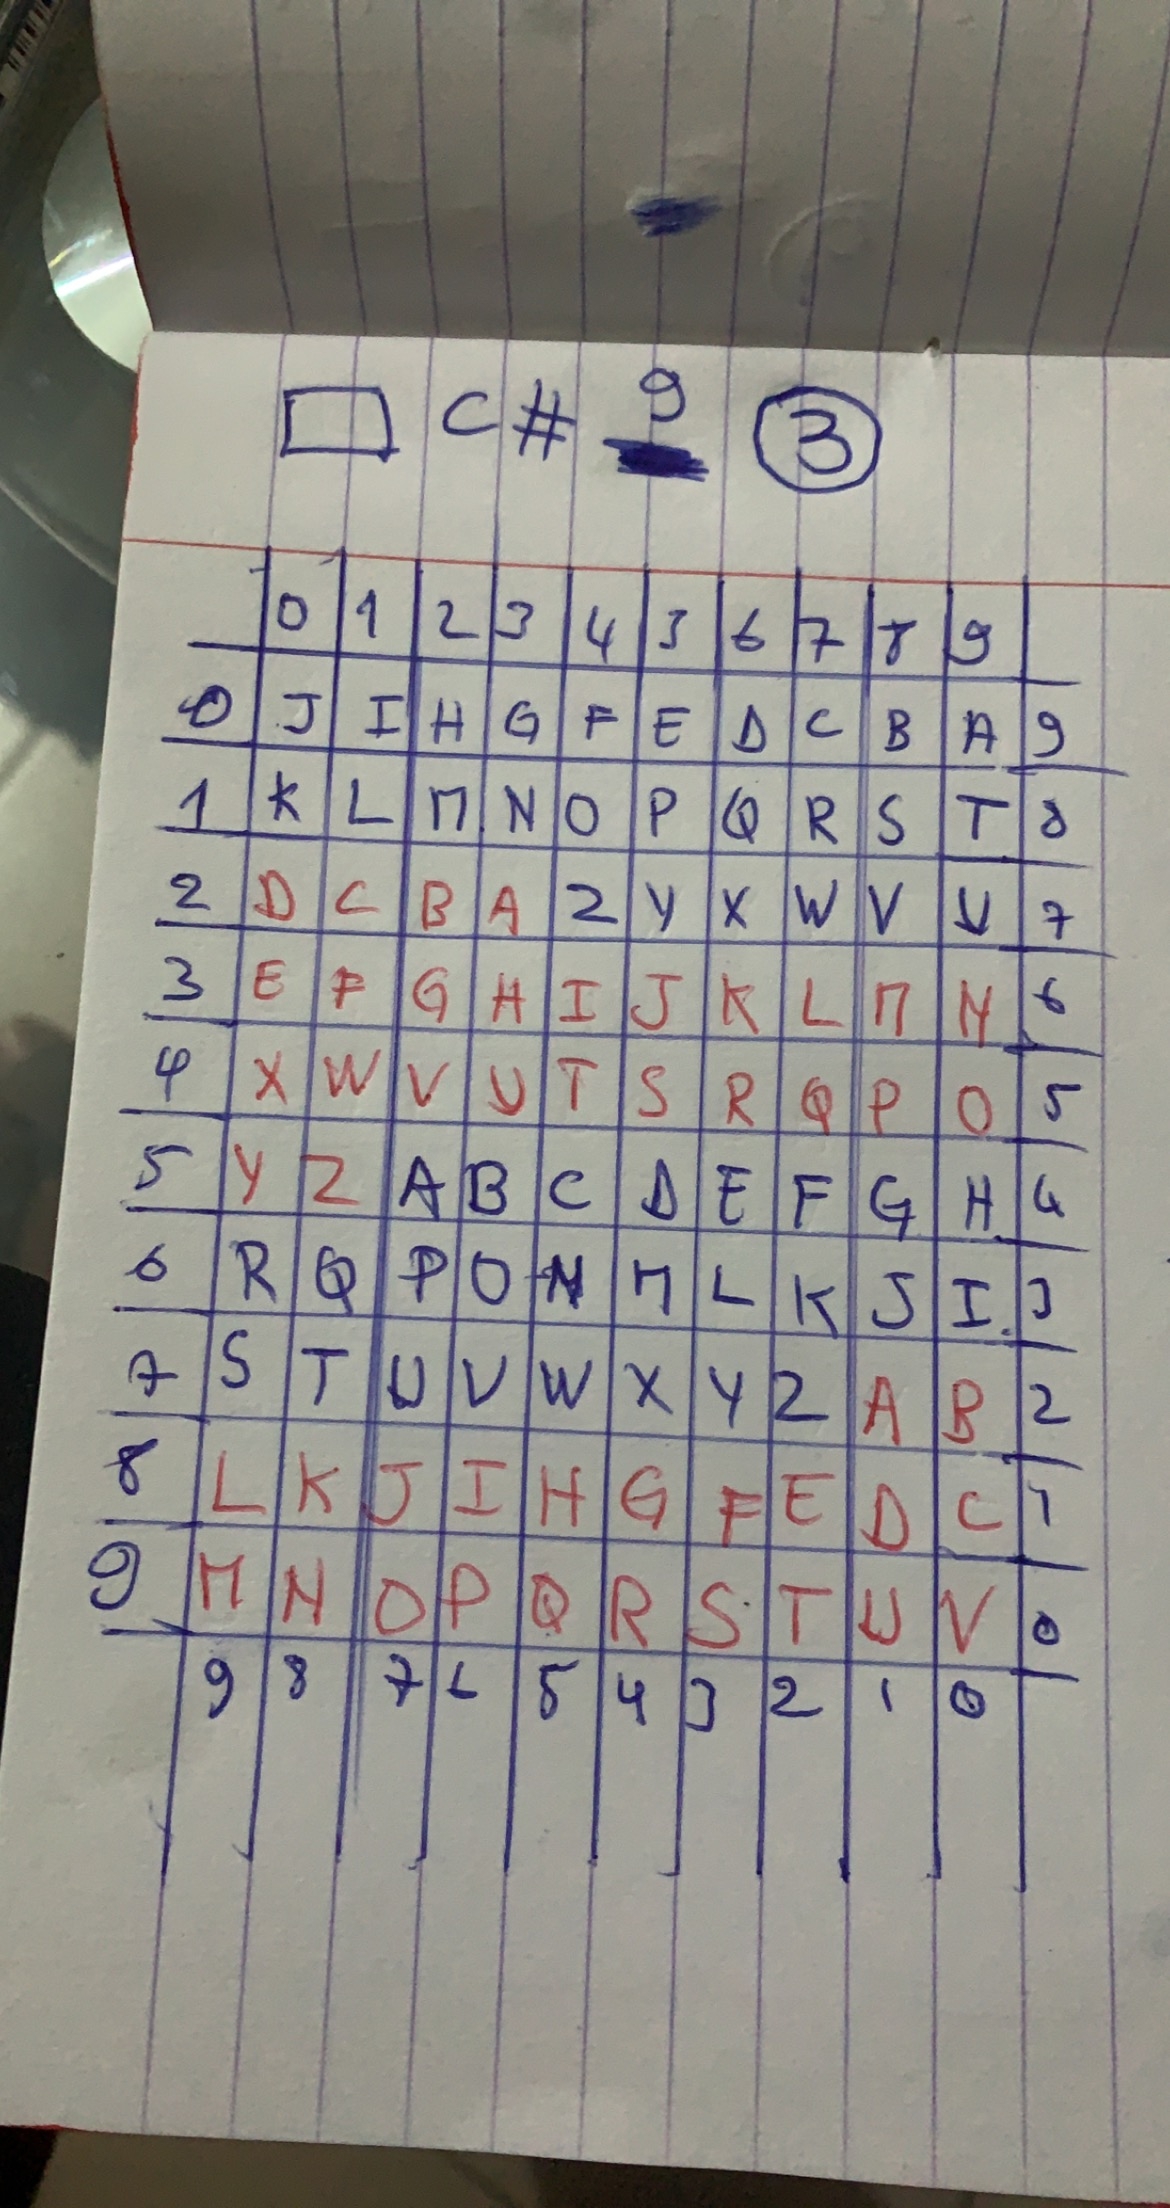 C # 9 3
0 1 2 3 4 5 6 7 8 9
0 J I H G F E D C B A 9
1 K L M N O P Q R S T 8
2 D C B A Z Y X W V U 7
3 E F G H I J K L M N 6
4 X W V U T S R Q P O 5
5 Y Z A B C D E F G H 4
6 R Q P O N M L K J I 3
7 S T U V W X Y Z A B 2
8 L K J I H G F E D C 1
9 M N O P Q R S T U V 0
9 8 7 6 5 4 3 2 1 0